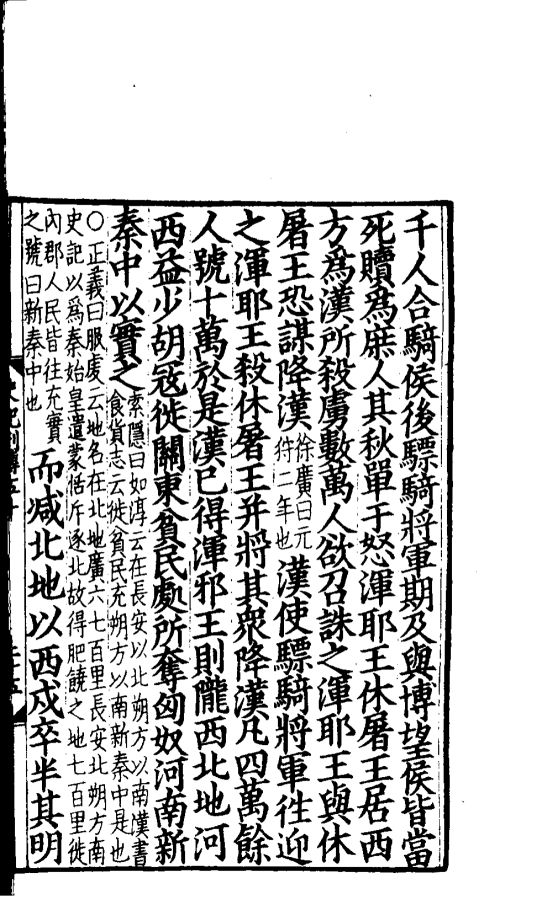 千人合騎侯後驃騎將軍期及與博望侯皆當
死贖爲庶人其秋單于怒渾耶王休屠王居西
方爲漢所殺虜數萬人欲召誅之渾耶王與休
屠王恐謀降漢
徐廣曰元
狩二年也
漢使驃騎將軍往迎
之渾耶王殺休屠王并將其衆降漢凡四萬餘
人號十萬於是漢已得渾邪王則隴西北地河
西益少胡冦徙關東貧民處所奪匈奴河南新
秦中以實之
索隱曰如淳云在長安以北朔方以南漢書
食貨志云徙貧民充朔方以南新秦中是也
○正義曰服虔云地名在北地廣六七百里長安北朔方南
史記以爲秦始皇遣蒙恬斥逐北故得肥饒之地七百里徙
內郡人民皆往充實
之號曰新秦中也
而減北地以西戍卒半其明